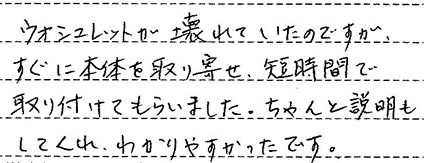 ウオシュレットが壊れていたのですが、
すぐに本体を取り寄せ、短時間で
取り付けてもらいました。ちゃんと説明も
してくれ、わかりやすかったです。